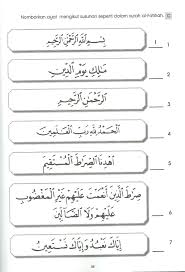 Nomborkan ayat mengikut susunan seperti dalam surah al-Fatihah.
بِسْمِ ٱللَّهِ ٱلرَّحْمَٰنِ ٱلرَّحِيمِ 1
مَٰلِكِ يَوْمِ ٱلدِّينِ 2
ٱلرَّحْمَٰنِ ٱلرَّحِيمِ 3
ٱلْحَمْدُ لِلَّهِ رَبِّ ٱلْعَٰلَمِينَ 4
ٱهْدِنَا ٱلصِّرَٰطَ ٱلْمُسْتَقِيمَ 5
صِرَٰطَ ٱلَّذِينَ أَنْعَمْتَ عَلَيْهِمْ غَيْرِ ٱلْمَغْضُوبِ
عَلَيْهِمْ وَلَا ٱلضَّآلِّينَ 6
إِيَّاكَ نَعْبُدُ وَإِيَّاكَ نَسْتَعِينُ 7